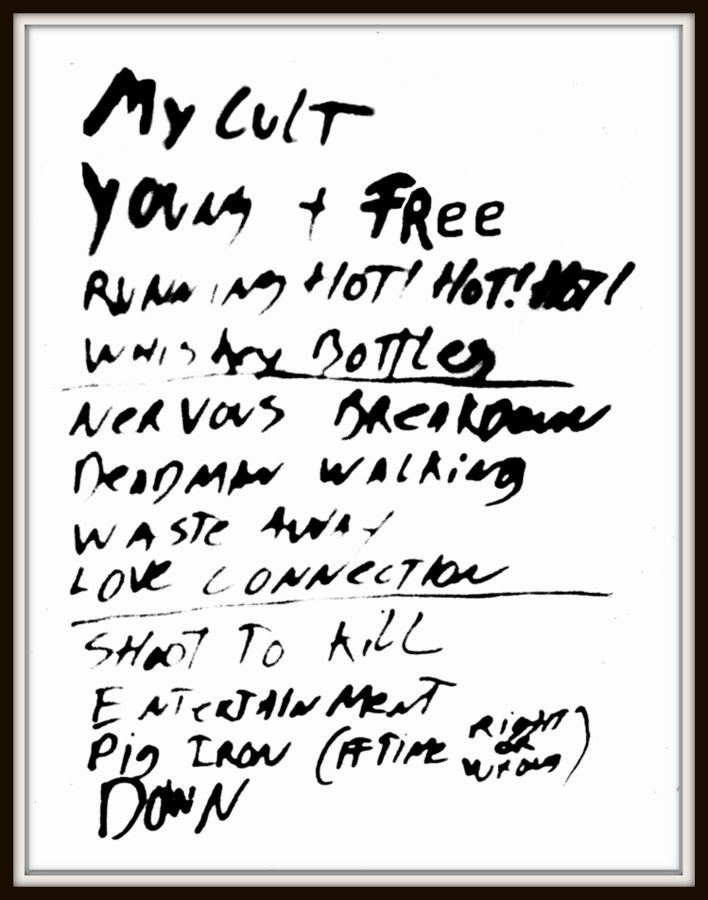 My CULT
YOUNG + FRee
RUNNING HOT! HOT! HOT!
WHISKEY BOTTLES
NeRVOUS BReAKDOWN
DeADMAN WALKing
WASTe AWAY
LOVe CONNeCTION
SHOOT TO KiLL
ENTeRTAINMeNT
Pig IRON (IF TIMe RigHT OR WRONG)
DOWN